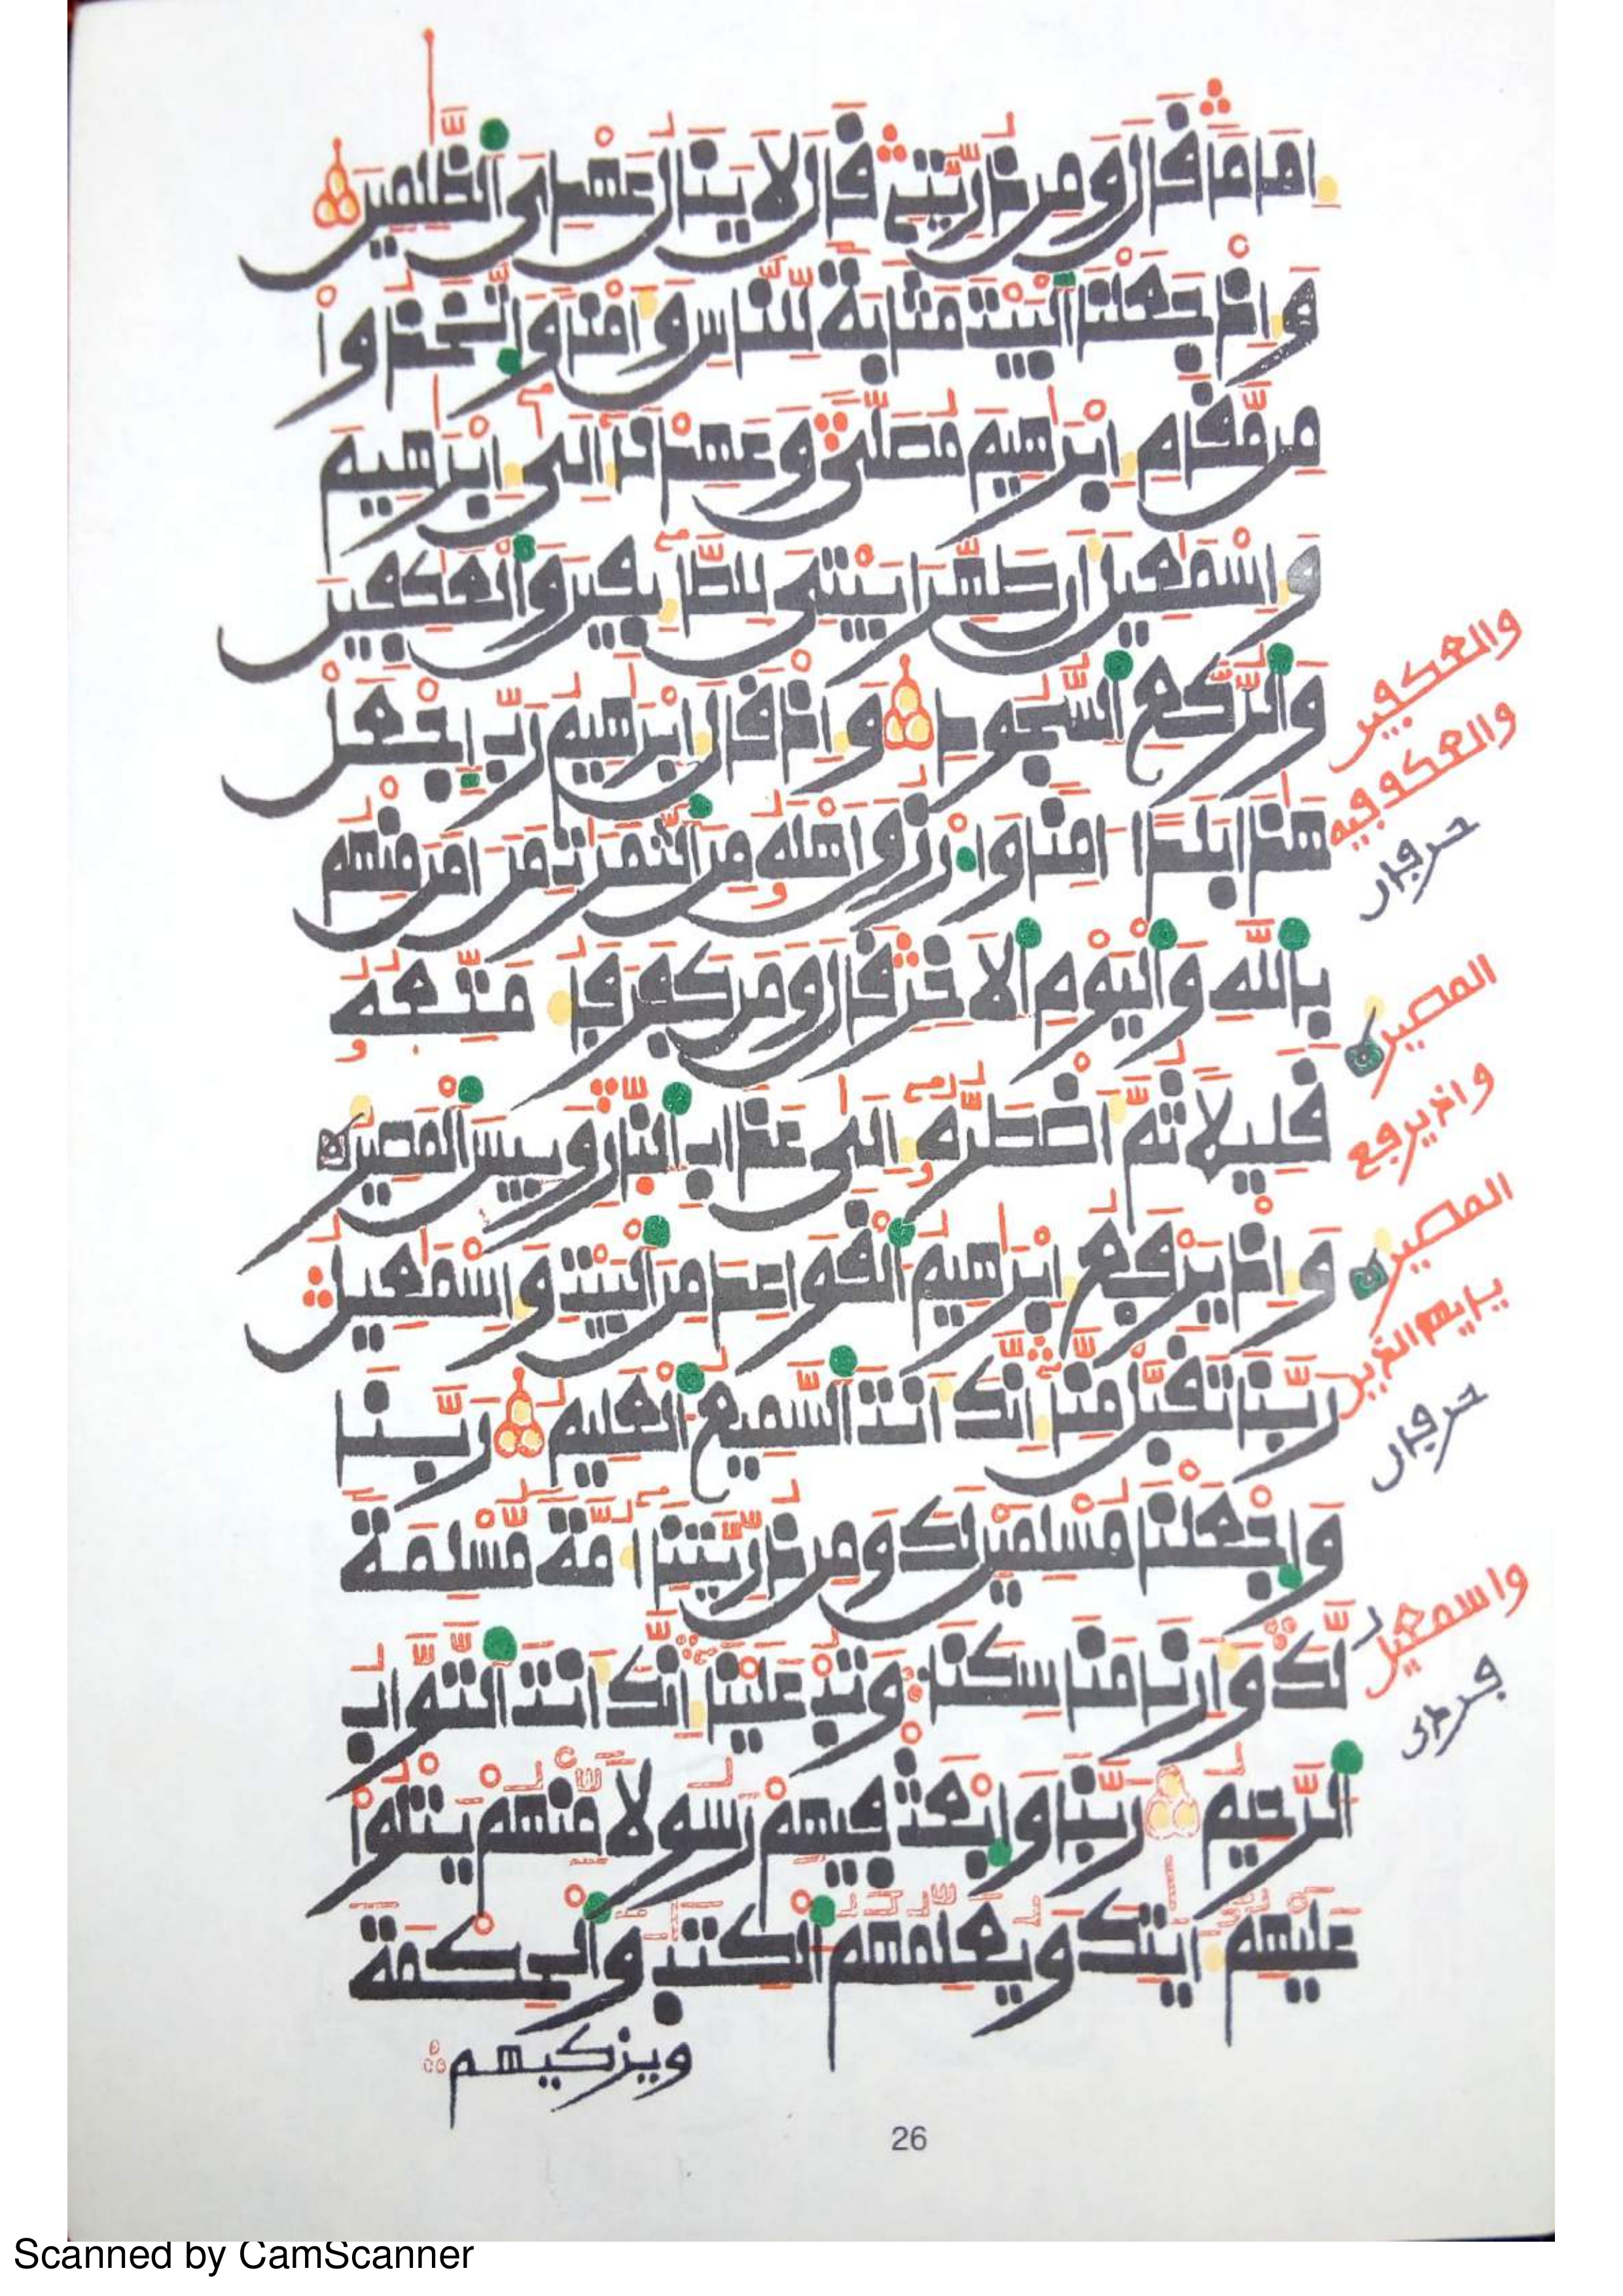 اِمَاماً قَالَ وَمِن ذُرِّيَّتِے قَالَ لَا يَنَالُ عَهْدِى اَلظَّٰلِمِينَ
وَإِذْ جَعَلْنَا اَلْبَيْتَ مَثَابَةً لِّلنَّاسِ وَأَمْناً وَاتَّخَذُواْ
مِن مَّقَامِ إِبْرَٰهِيمَ مُصَلّىً وَعَهِدْنَا إِلَىٰ إِبْرَٰهِيمَ
وَإِسْمَٰعِيلَ أَن طَهِّرَا بَيْتِىَ لِلطَّآئِفِينَ وَالْعَٰكِفِينَ
وَالرُّكَّعِ اِلسُّجُودِ وَإِذْ قَالَ إِبْرَٰهِيمُ رَبِّ اِجْعَلْ
هَٰذَا بَلَداً ـامِناً وَارْزُقْ أَهْلَهُۥ مِنَ اَلثَّمَرَٰتِ مَنَ ـامَنَ مِنْهُم
بِاللَّهِ وَالْيَوْمِ اِلَاخِرِ قَالَ وَمَن كَفَرَ فَأُمَتِّعُهُۥ
قَلِيلًا ثُمَّ أَضْطَرُّهُۥ إِلَىٰ عَذَابِ اِلنَّارِ وَبِيسَ اَلْمَصِيرُ
وَإِذْ يَرْفَعُ إِبْرَٰهِيمُ اُلْقَوَاعِدَ مِنَ اَلْبَيْتِ وَإِسْمَٰعِيلُ
رَبَّنَا تَقَبَّلْ مِنَّا إِنَّكَ أَنتَ اَلسَّمِيعُ اُلْعَلِيمُ رَبَّنَا
وَاجْعَلْنَا مُسْلِمَيْنِ لَكَ وَمِن ذُرِّيَّتِنَا أُمَّةً مُّسْلِمَةً
لَّكَ وَأَرِنَا مَنَاسِكَنَا وَتُبْ عَلَيْنَا إِنَّكَ أَنتَ اَلتَّوَّابُ
اُلرَّحِيمُ رَبَّنَا وَابْعَثْ فِيهِمْ رَسُولًا مِّنْهُمْ يَتْلُواْ
عَلَيْهِمُ ءَايَٰتِكَ وَيُعَلِّمُهُمُ اُلْكِتَٰبَ وَالْحِكْمَةَ
ويزكيهم
والعكفين
والعكوفيه
حرفان
المصيره
واذ يرفع
المصيره
يايها الذين
حرفان
واسمعيل
26
Scanned by CamScanner